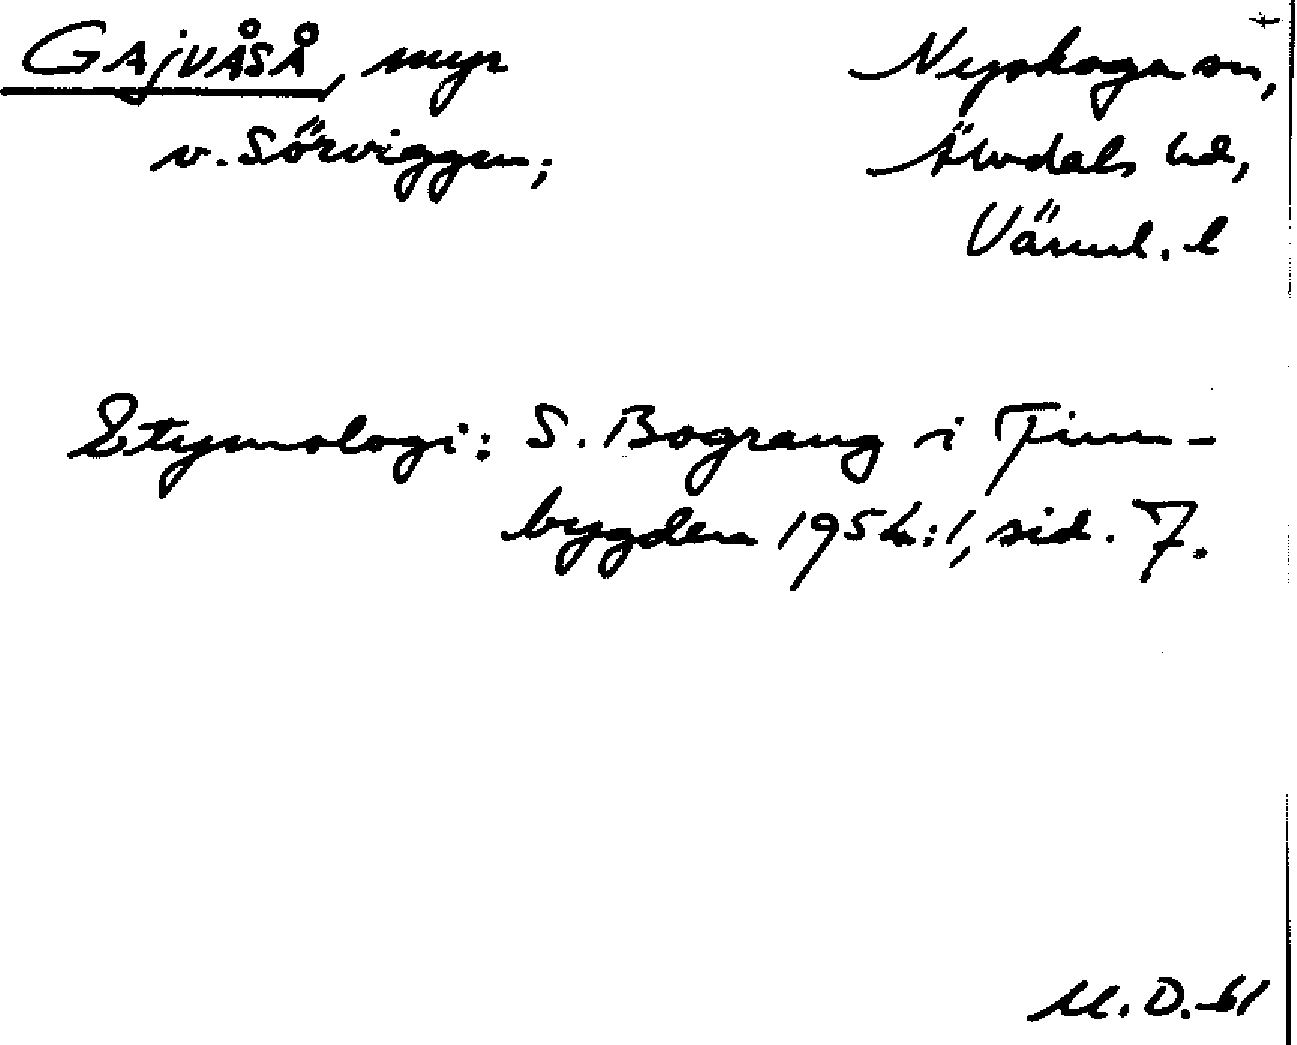 GAJVÅSÅ, myr
v. Sörviggen;
Nyskoga sn,
Älvdals hd,
Värml. l
Etymologi: S. Bograng i Finn-
bygden 1954:1, sid. 7.
M.D.-61